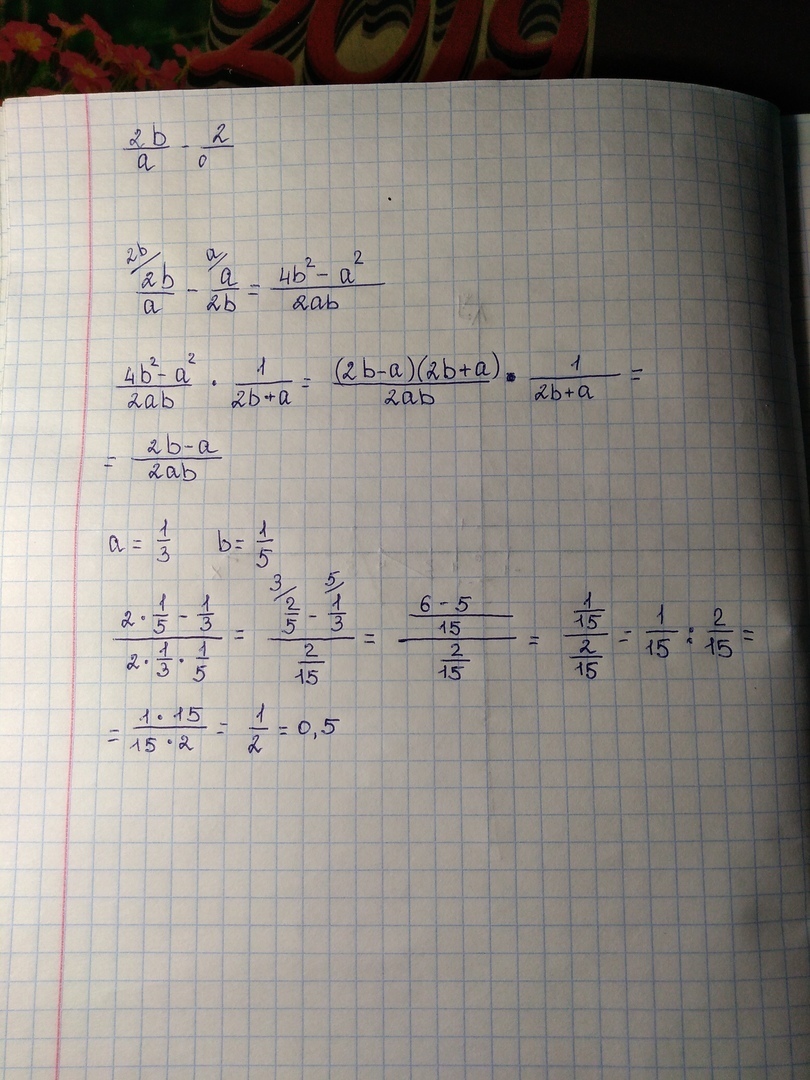 2019
2b/a - 2/0
2b/ 2b/a - a/ a/2b = (4b² - a²)/2ab
(4b² - a²)/2ab · 1/(2b+a) = (2b-a)(2b+a)/2ab · 1/(2b+a) =
= (2b-a)/2ab
a = 1/3 b = 1/5
(2·1/5 - 1/3)/(2·1/3·1/5) = (3/ 2/5 - 5/ 1/3)/(2/15) = ((6-5)/15)/(2/15) = (1/15)/(2/15) = 1/15 : 2/15 =
= (1·15)/(15·2) = 1/2 = 0,5